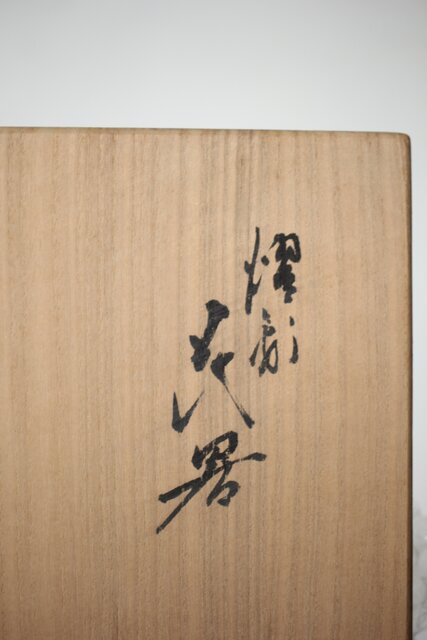 燿彩
花器